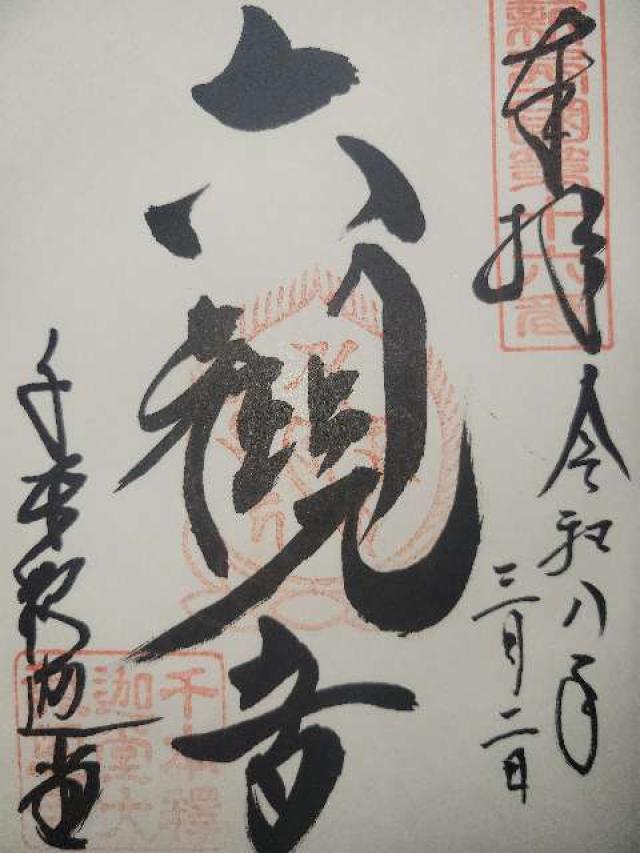 奉拝
令和八年
三月二日
六観音
千本釈迦堂
新西国第十六番
千本釋
迦堂大